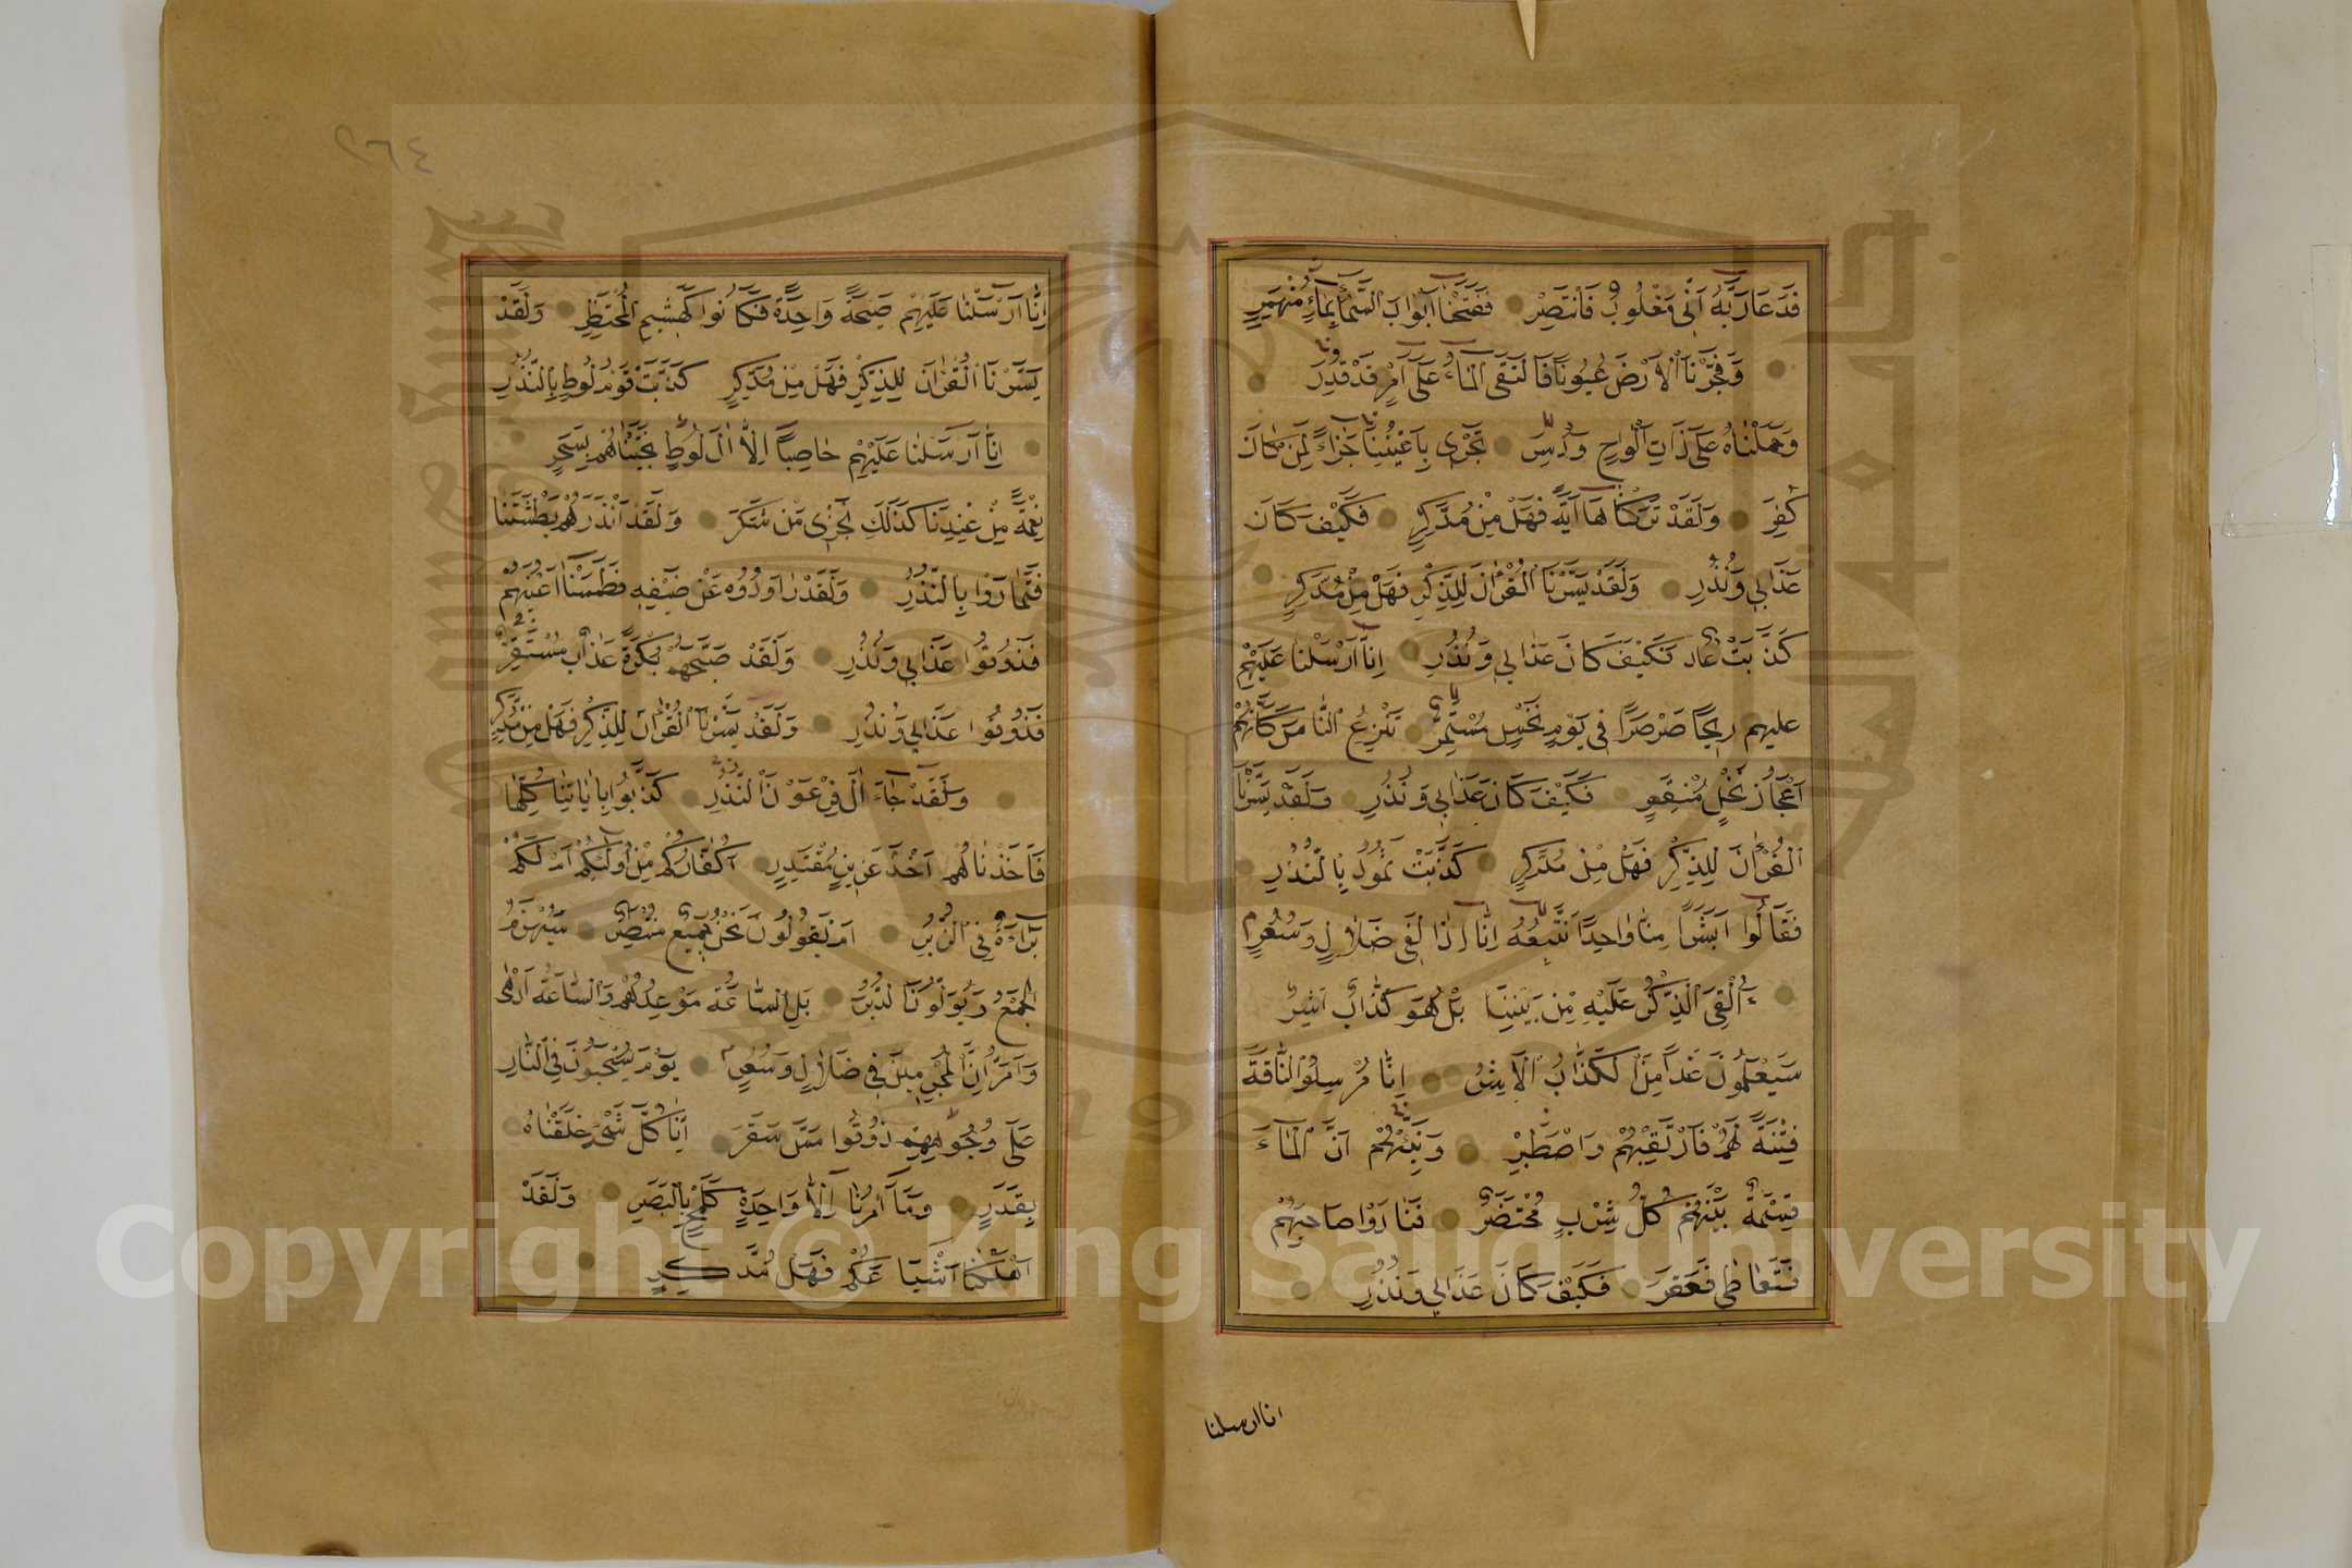 فَدَعَا رَبَّهُ اَنّٖى مَغْلُوبٌ فَانْتَصِرْ فَفَتَحْنَا اَبْوَابَ السَّمَاءِ بِمَاءٍ مُنْهَمِرٍ
وَفَجَّرْنَا الْاَرْضَ عُيُونًا فَالْتَقَى الْمَاءُ عَلٰى اَمْرٍ قَدْ قُدِرَ
وَحَمَلْنَاهُ عَلٰى ذَاتِ اَلْوَاحٍ وَدُسُرٍ تَجْرٖى بِاَعْيُنِنَا جَزَاءً لِمَنْ كَانَ
كُفِرَ وَلَقَدْ تَرَكْنَاهَا اٰيَةً فَهَلْ مِنْ مُدَّكِرٍ فَكَيْفَ كَانَ
عَذَابٖى وَنُذُرِ وَلَقَدْ يَسَّرْنَا الْقُرْاٰنَ لِلذِّكْرِ فَهَلْ مِنْ مُدَّكِرٍ
كَذَّبَتْ عَادٌ فَكَيْفَ كَانَ عَذَابٖى وَنُذُرِ اِنَّا اَرْسَلْنَا عَلَيْهِمْ
عليهم رٖيحًا صَرْصَرًا فٖى يَوْمِ نَحْسٍ مُسْتَمِرٍّ تَنْزِعُ النَّاسَ كَاَنَّهُمْ
اَعْجَازُ نَخْلٍ مُنْقَعِرٍ فَكَيْفَ كَانَ عَذَابٖى وَنُذُرِ وَلَقَدْ يَسَّرْنَا
الْقُرْاٰنَ لِلذِّكْرِ فَهَلْ مِنْ مُدَّكِرٍ كَذَّبَتْ ثَمُودُ بِالنُّذُرِ
فَقَالُوا اَبَشَرًا مِنَّا وَاحِدًا نَتَّبِعُهُ اِنَّا اِذًا لَفٖى ضَلَالٍ وَسُعُرٍ
ءَاُلْقِىَ الذِّكْرُ عَلَيْهِ مِنْ بَيْنِنَا بَلْ هُوَ كَذَّابٌ اَشِرٌ
سَيَعْلَمُونَ غَدًا مَنِ الْكَذَّابُ الْاَشِرُ اِنَّا مُرْسِلُوا النَّاقَةِ
فِتْنَةً لَهُمْ فَارْتَقِبْهُمْ وَاصْطَبِرْ وَنَبِّئْهُمْ اَنَّ الْمَاءَ
قِسْمَةٌ بَيْنَهُمْ كُلُّ شِرْبٍ مُحْتَضَرٌ فَنَادَوْا صَاحِبَهُمْ
فَتَعَاطٰى فَعَقَرَ فَكَيْفَ كَانَ عَذَابٖى وَنُذُرِ
انا ارسلنا
٢٦٤
اِنَّا اَرْسَلْنَا عَلَيْهِمْ صَيْحَةً وَاحِدَةً فَكَانُوا كَهَشٖيمِ الْمُحْتَظِرِ وَلَقَدْ
يَسَّرْنَا الْقُرْاٰنَ لِلذِّكْرِ فَهَلْ مِنْ مُدَّكِرٍ كَذَّبَتْ قَوْمُ لُوطٍ بِالنُّذُرِ
اِنَّا اَرْسَلْنَا عَلَيْهِمْ حَاصِبًا اِلَّا اٰلَ لُوطٍ نَجَّيْنَاهُمْ بِسَحَرٍ
نِعْمَةً مِنْ عِنْدِنَا كَذٰلِكَ نَجْزٖى مَنْ شَكَرَ وَلَقَدْ اَنْذَرَهُمْ بَطْشَتَنَا
فَتَمَارَوْا بِالنُّذُرِ وَلَقَدْ رَاوَدُوهُ عَنْ ضَيْفِهٖ فَطَمَسْنَا اَعْيُنَهُمْ
فَذُوقُوا عَذَابٖى وَنُذُرِ وَلَقَدْ صَبَّحَهُمْ بُكْرَةً عَذَابٌ مُسْتَقِرٌّ
فَذُوقُوا عَذَابٖى وَنُذُرِ وَلَقَدْ يَسَّرْنَا الْقُرْاٰنَ لِلذِّكْرِ فَهَلْ مِنْ مُدَّكِرٍ
وَلَقَدْ جَاءَ اٰلَ فِرْعَوْنَ النُّذُرُ كَذَّبُوا بِاٰيَاتِنَا كُلِّهَا
فَاَخَذْنَاهُمْ اَخْذَ عَزٖيزٍ مُقْتَدِرٍ اَكُفَّارُكُمْ مِنْ اُولٰئِكُمْ اَمْ لَكُمْ
بَرَاءَةٌ فِى الزُّبُرِ اَمْ يَقُولُونَ نَحْنُ جَمٖيعٌ مُنْتَصِرٌ سَيُهْزَمُ
الْجَمْعُ وَيُوَلُّونَ الدُّبُرَ بَلِ السَّاعَةُ مَوْعِدُهُمْ وَالسَّاعَةُ اَدْهٰى
وَاَمَرُّ اِنَّ الْمُجْرِمٖينَ فٖى ضَلَالٍ وَسُعُرٍ يَوْمَ يُسْحَبُونَ فِى النَّارِ
عَلٰى وُجُوهِهِمْ ذُوقُوا مَسَّ سَقَرَ اِنَّا كُلَّ شَىْءٍ خَلَقْنَاهُ
بِقَدَرٍ وَمَا اَمْرُنَا اِلَّا وَاحِدَةٌ كَلَمْحٍ بِالْبَصَرِ وَلَقَدْ
اَهْلَكْنَا اَشْيَاعَكُمْ فَهَلْ مُدَّكِرٍ
Copyright © King Saud University
1957